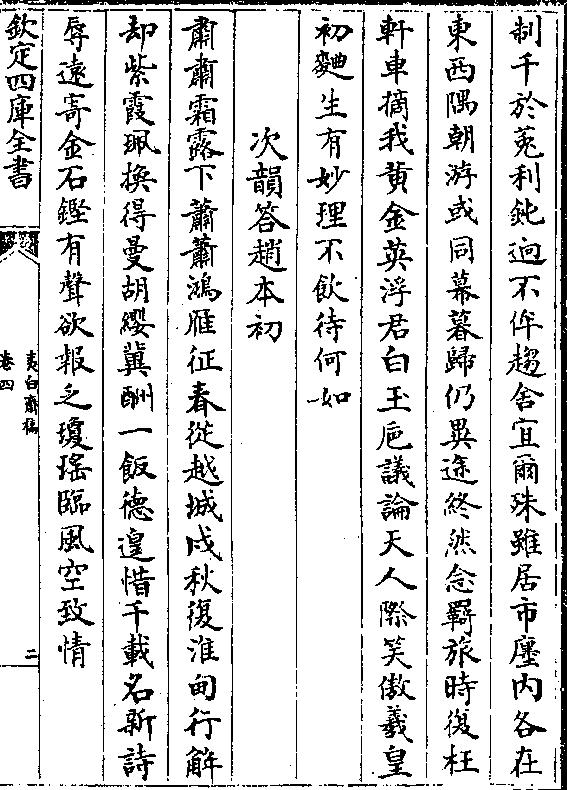 制千於菟利鈍逈不侔趨舍宜爾殊雖居市廛内各在
東西隅朝游或同幕暮歸仍異途終然念羇旅時復枉
軒車摘我黄金英浮君白玉巵議論天人際笑傲羲皇
初麯生有妙理不飲待何如
次韻答趙本初
肅肅霜露下蕭蕭鴻雁征春從越城戍秋復淮甸行解
却紫霞珮換得曼胡纓冀酬一飯德遑惜千載名新詩
辱遠寄金石鏗有聲欲報乏瓊瑶臨風空致情
欽定四庫全書
夷白齋稿
卷四
二